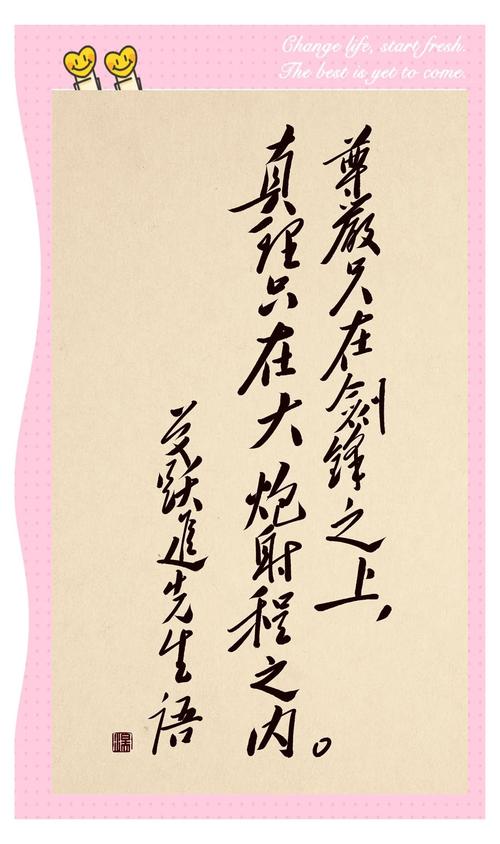 Change life, start fresh.
The best is yet to come.
尊严只在剑锋之上，
真理只在大炮射程之内。
跃进先生语